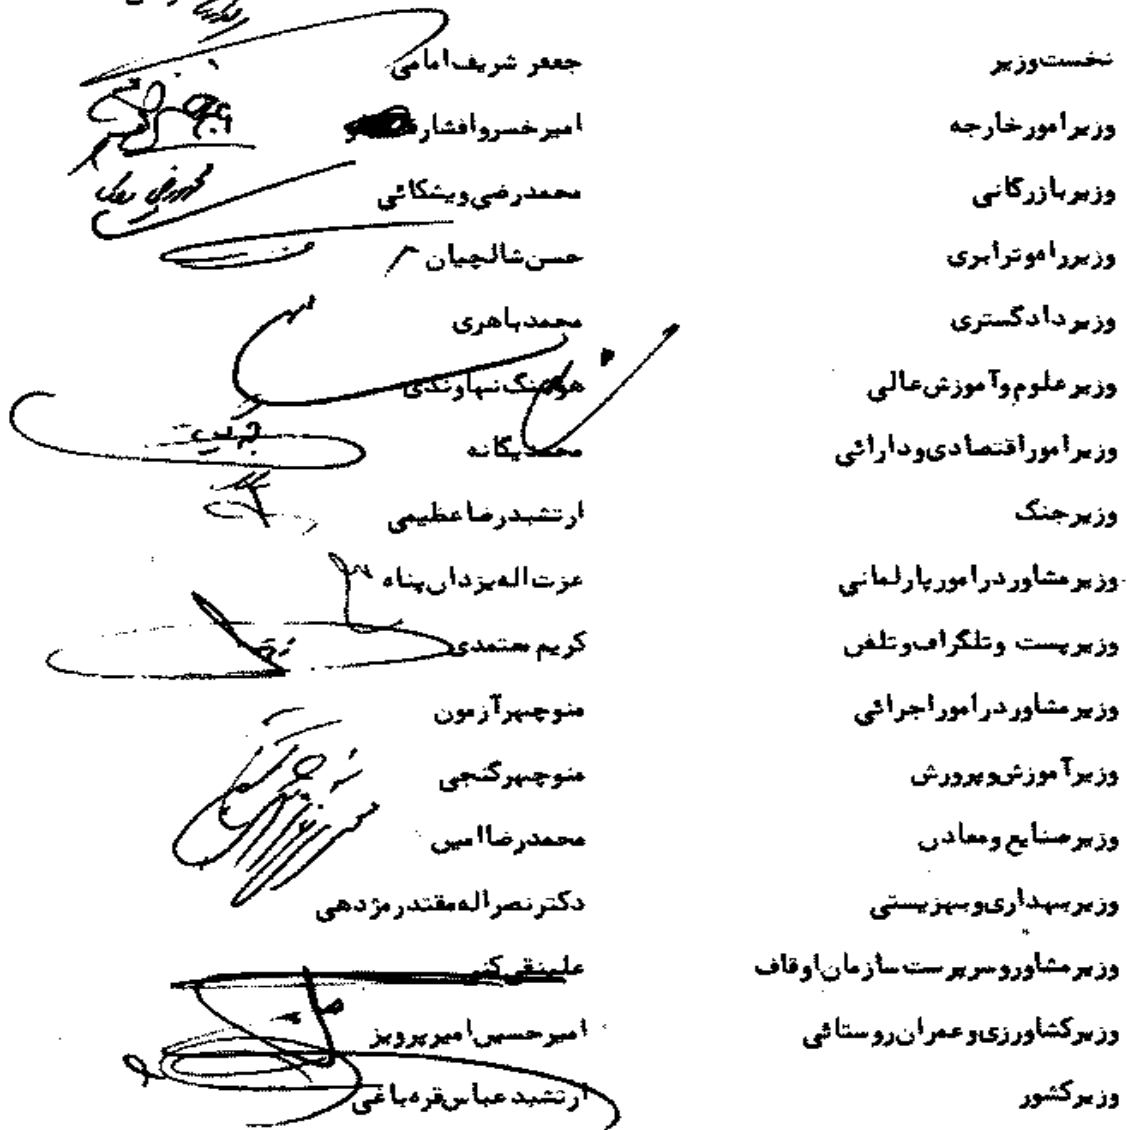 نخست‌وزیر جعفر شریف‌امامی
وزیر امور خارجه امیرخسرو افشار
وزیر بازرگانی محمدرضی ویشکائی
وزیر راه و ترابری حسن شالچیان
وزیر دادگستری محمد باهری
وزیر علوم و آموزش عالی هوشنگ نهاوندی
وزیر امور اقتصادی و دارائی محمد یگانه
وزیر جنگ ارتشبد رضا عظیمی
وزیر مشاور در امور پارلمانی عزت‌اله یزدان‌پناه
وزیر پست و تلگراف و تلفن کریم معتمدی
وزیر مشاور در امور اجرائی منوچهر آزمون
وزیر آموزش و پرورش منوچهر گنجی
وزیر صنایع و معادن محمدرضا امین
وزیر بهداری و بهزیستی دکتر نصراله مقتدر مژدهی
وزیر مشاور و سرپرست سازمان اوقاف علینقی کنی
وزیر کشاورزی و عمران روستائی امیرحسین امیرپرویز
وزیر کشور ارتشبد عباس قره‌باغی